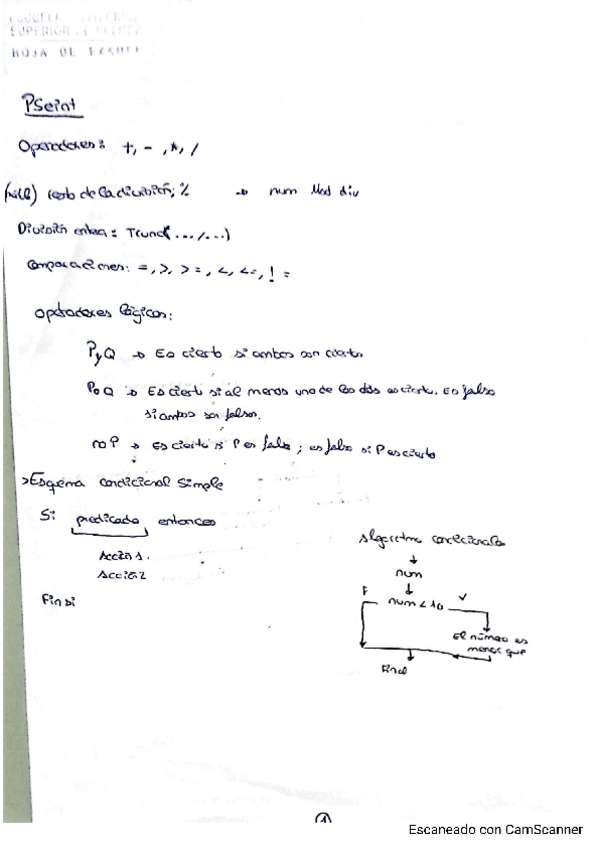 ESCUELA
SUPERIOR
HOJA DE EXAMEN
PSeint
Operadores: +, -, *, /
resto de la división; % → num Mod div
División entera: Trunc(.../...)
Comparaciones: =, >, >=, <, <=, !=
Operadores lógicos:
P y Q → Es cierto si ambos son ciertos
P o Q → Es cierto si al menos uno de los dos es cierto. Es falso
si ambos son falsos.
no P → Es cierto si P es falso; es falso si P es cierto
>Esquema condicional simple
Si predicado entonces
Acción 1.
Acción 2
Finsi
Algoritmo condicionales
num
F num < 10 ✓
El número es
menor que
Final
1
Escaneado con CamScanner